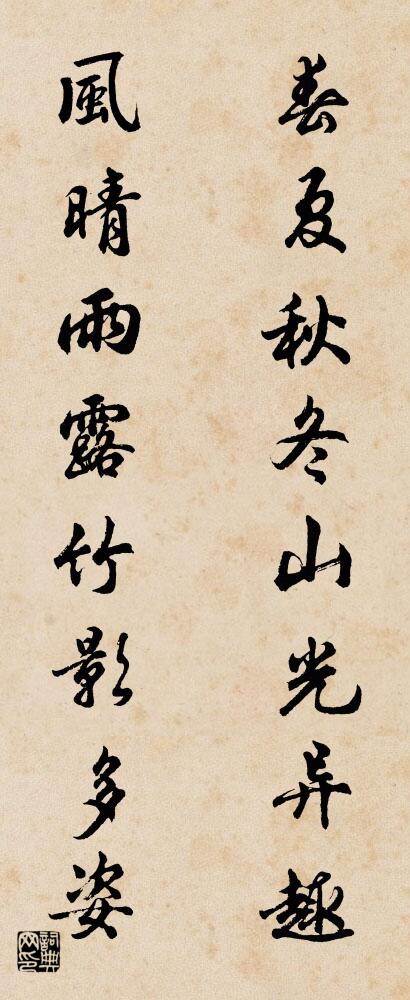 春夏秋冬山光异趣
風晴雨露竹影多姿
詞典網印